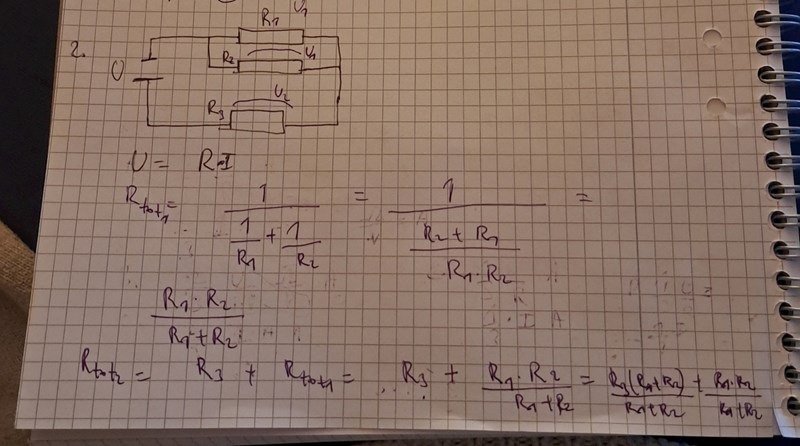 U₁
R₁
2.
R₂
U₁
U
U₂
R₃
U = R·I
R_tot₁ = 1 / (1/R₁ + 1/R₂) = 1 / ((R₂ + R₁) / (R₁ · R₂)) =
(R₁ · R₂) / (R₁ + R₂)
R_tot₂ = R₃ + R_tot₁ = R₃ + (R₁ · R₂) / (R₁ + R₂) = R₃(R₁+R₂) / (R₁+R₂) + (R₁·R₂) / (R₁+R₂)